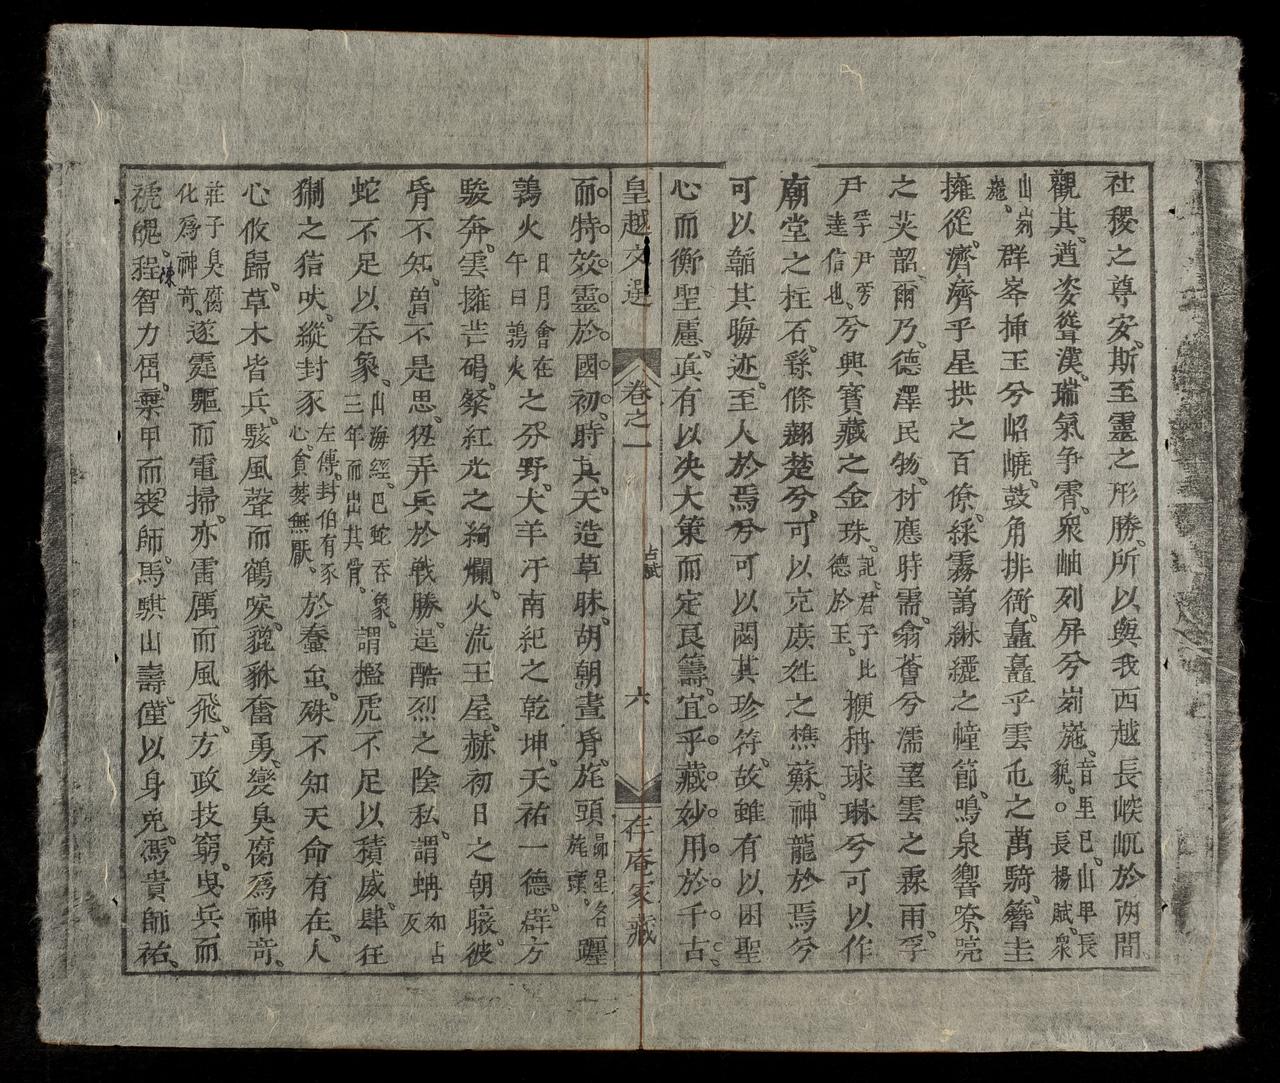 社稷之尊安斯至靈之形勝所以與我西越長峻屼於兩間
觀其遒姿聳漢瑞氣爭霄衆岫列屏兮峛崺音里已山卑長貌○長楊賦衆
山峛崺群峯揷玉兮岹嶢鼓角排衙矗矗乎雲屯之萬騎簪圭
擁從濟濟乎星拱之百僚綵霧萬綝纚之幢節鳴泉響嘹喨
之英韶爾乃德澤民物材應時需翕薈兮濡望雲之霖雨孚
尹孚尹旁達信也兮興寶藏之金珠記君子比德於玉楩枏球琳兮可以作
廟堂之柱石繇條翹楚兮可以克庶姓之樵蘇神龍於焉兮
可以韜其晦迹至人於焉兮可以閟其珍符故雖有以困聖
心而衡聖慮眞有以决大策而定良籌宜乎藏妙用於千古
皇越文選 卷之一 古賦 六 存庵家藏
而特效靈於國初時其天造草昧胡朝晝昏旄頭昴星名旄頭躔
鶉火日月會在午日鶉火之分野犬羊汙南紀之乾坤天祐一德群方
駿奔雲擁芒碭祭紅光之絢爛火流王屋赫初日之朝暾彼
昏不知曽不是思猶弄兵於戦勝逞酷烈之陰私謂蚺如占反
蛇不足以吞象山海經巴蛇吞象三年而出其骨謂檻虎不足以積威肆狂
猘之狺吠縱封豕左傳封伯有豕心貪婪無厭於蠢玆殊不知天命有在人
心攸歸草木皆兵駭風聲而鶴唳貔貅奮勇變臭腐爲神竒
莊子臭腐化爲神竒遂霆驅而電掃亦雷厲而風飛方政技窮曳兵而
褫魄程悚智力屈棄甲而喪師馬騏山壽僅以身免馮貴師祐